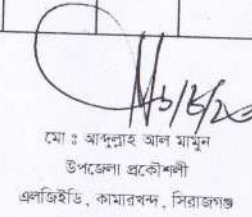 মো ঃ আব্দুল্লাহ আল মামুন
উপজেলা প্রকৌশলী
এলজিইডি, কামারখন্দ, সিরাজগঞ্জ